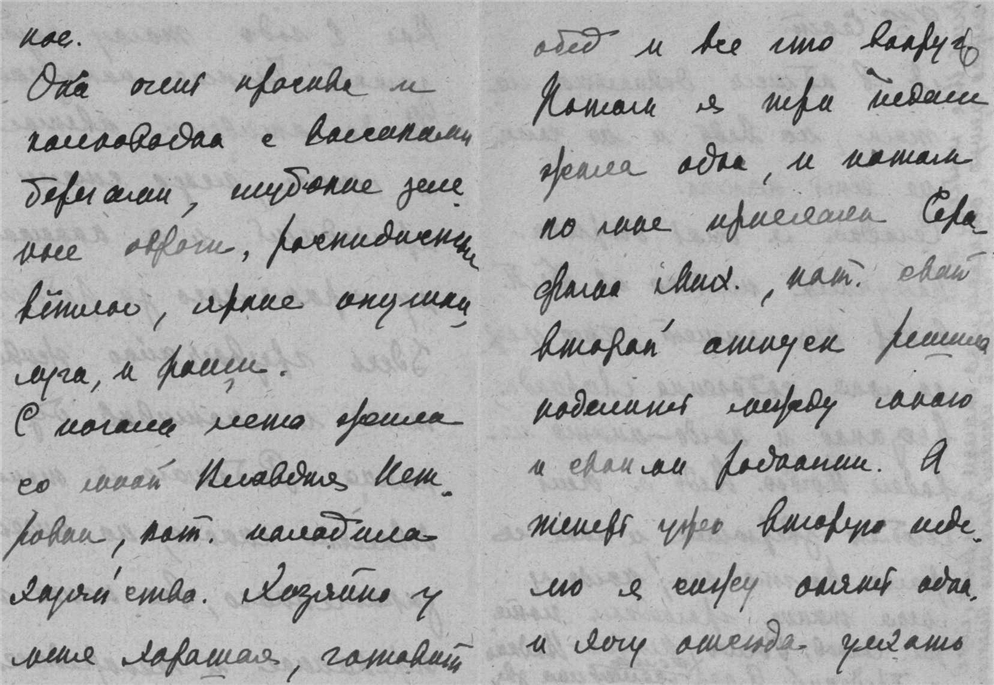 ное.
Ока очень красива и
полноводна с высокими
берегами, глубокие зеле-
ные овраги, раскидистые
вётлы, яркие опушки,
луга, и рощи.
С начала лета жила
со мной Клавдия Пет-
ровна, кот. наладила
хозяйство. Хозяйка у
меня хорошая, готовит
обед и все что вокруг
Потом я три недели
жила одна, и потом
ко мне приехала Сера-
фима Мих., кот. свой
второй отпуск решила
поделить между мною
и своими родными. А
теперь уже вторую неде-
лю я сижу опять одна,
и хочу отсюда уехать